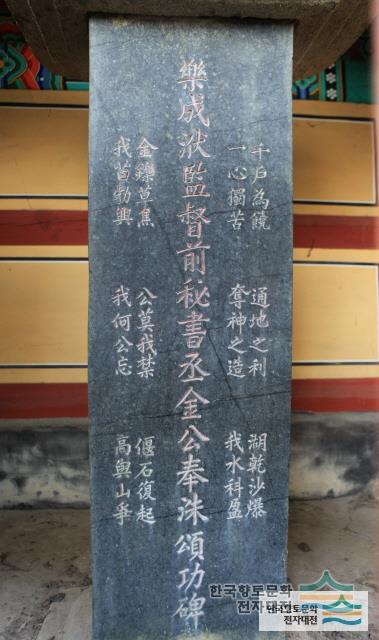 千戶為饒
一心獨苦
通地之利
奪神之造
湖乾沙爆
我水科盈
樂成洑監督前秘書丞金公奉洙頌功碑
金鑠草焦
我苗勃興
公莫我禁
我何公忘
偃石復起
高與山爭
한국향토문화
전자대전
한국향토문화
전자대전